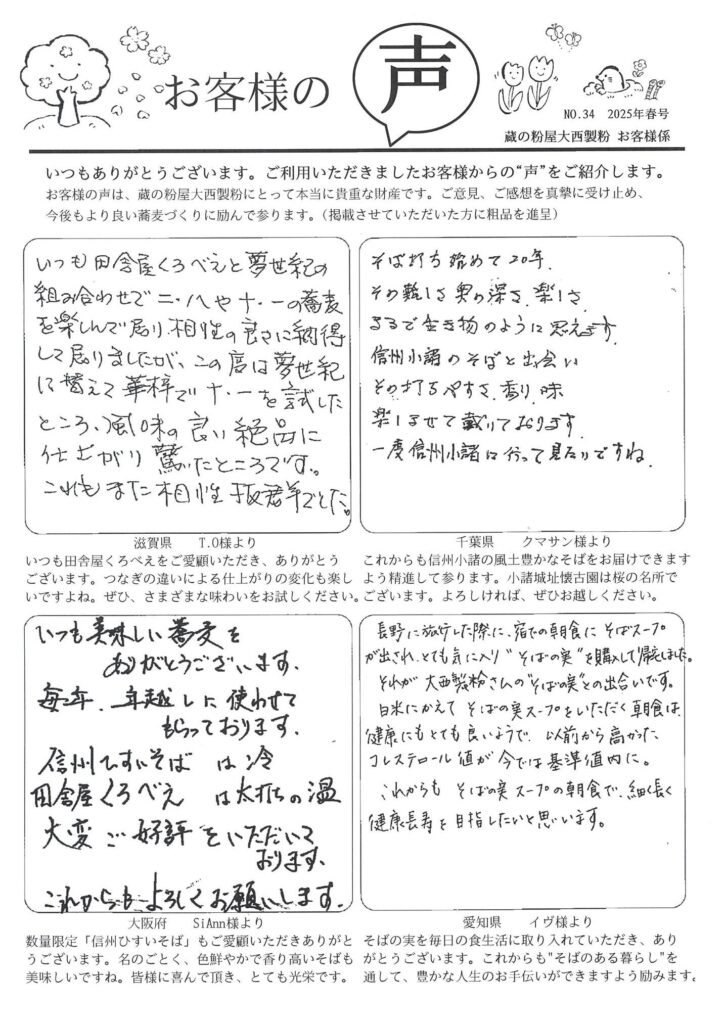 お客様の声
NO.34 2025年春号
蔵の粉屋大西製粉 お客様係
いつもありがとうございます。ご利用いただきましたお客様からの“声”をご紹介します。
お客様の声は、蔵の粉屋大西製粉にとって本当に貴重な財産です。ご意見、ご感想を真摯に受け止め、
今後もより良い蕎麦づくりに励んで参ります。（掲載させていただいた方に粗品を進呈）
いつも田舎屋くろべえと夢世紀の
組み合わせで二・八や十・一の蕎麦
を楽しんで居り、相性の良さに納得
して居りましたが、この度は夢世紀
に替えて華梓で十・一を試した
ところ、風味の良い絶品に
仕上がり驚いたところです。
これもまた相性抜群でした。
滋賀県 T.O様より
いつも田舎屋くろべえをご愛顧いただき、ありがとう
ございます。つなぎの違いによる仕上がりの変化も楽し
いですよね。ぜひ、さまざまな味わいをお試しください。
そば打ち始めて20年、
その難しさ奥の深さ、楽しさ
まるで生き物のように思えます
信州小諸のそばと出会い
その打ちやすさ、香り、味
楽しませて戴いております
一度信州小諸に行って見たいですね。
千葉県 クマサン様より
これからも信州小諸の風土豊かなそばをお届けできます
よう精進して参ります。小諸城址懐古園は桜の名所で
ございます。よろしければ、ぜひお越しください。
いつも美味しい蕎麦を
ありがとうございます、
毎年、年越しに使わせて
もらっております、
信州ひすいそば は冷
田舎屋くろべえ は太打ちの温
大変ご好評をいただいて
おります、
これからもよろしくお願いします、
大阪府 SiAnn様より
数量限定「信州ひすいそば」もご愛顧いただきありがと
うございます。名のごとく、色鮮やかで香り高いそばも
美味しいですね。皆様に喜んで頂き、とても光栄です。
長野に旅行した際に、宿での朝食にそばスープ
が出され、とても気に入り“そばの実”を購入して帰宅しました。
それが大西製粉さんの“そばの実”との出合いです。
白米にかえてそばの実スープをいただく朝食は、
健康にもとても良いようで、以前から高かった
コレステロール値が今では基準値内に。
これからもそばの実スープの朝食で、細く長く
健康長寿を目指したいと思います。
愛知県 イヴ様より
そばの実を毎日の食生活に取り入れていただき、あり
がとうございます。これからも"そばのある暮らし"を
通して、豊かな人生のお手伝いができますよう励みます。